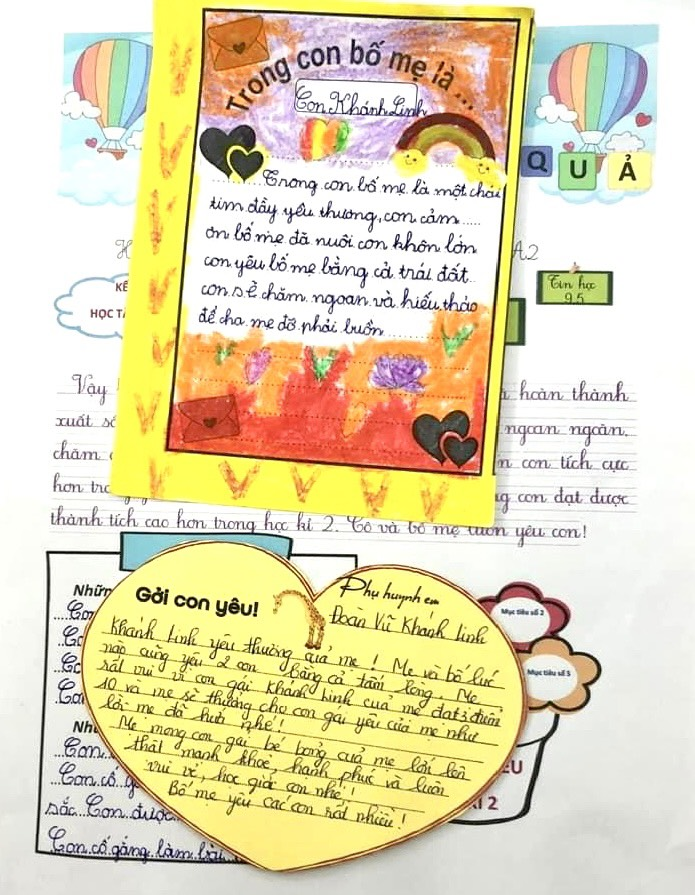 Trong con bố mẹ là ...
Con Khánh Linh
Trong con bố mẹ là một chái
tim đầy yêu thương, con cảm
ơn bố mẹ đã nuôi con khôn lớn
con yêu bố mẹ bằng cả trái đất
con sẽ chăm ngoan và hiếu thảo
để cha mẹ đỡ phải buồn
QUẢ
A2
KẾ
HỌC TẬ
Tin học
9.5
Vậy
hoàn thành
xuất sắ
ngoan ngoãn.
chăm
con tích cực
hơn tro
con đạt được
thành tích cao hơn trong học kì 2. Cô và bố mẹ luôn yêu con!
Gởi con yêu!
Phụ huynh em
Đoàn Vũ Khánh Linh
Khánh Linh yêu thương của mẹ! Mẹ và bố lúc
nào cũng yêu 2 con bằng cả tấm lòng. Mẹ
rất vui vì con gái Khánh Linh của mẹ đạt 3 điểm
10 và mẹ sẽ thưởng cho con gái yêu của mẹ như
lời mẹ đã hứa nhé!
Mẹ mong con gái bé bỏng của mẹ lớn lên
thật mạnh khoẻ hạnh phúc và luôn
vui vẻ, học giỏi con nhé!
Bố mẹ yêu các con rất nhiều!
Nhữn
Con
Nh
Con
Con cố g
sắc. Con được
Con cố gắng làm bài
Mục tiêu số 2
Mục tiêu số 3
ÊU
KÌ 2